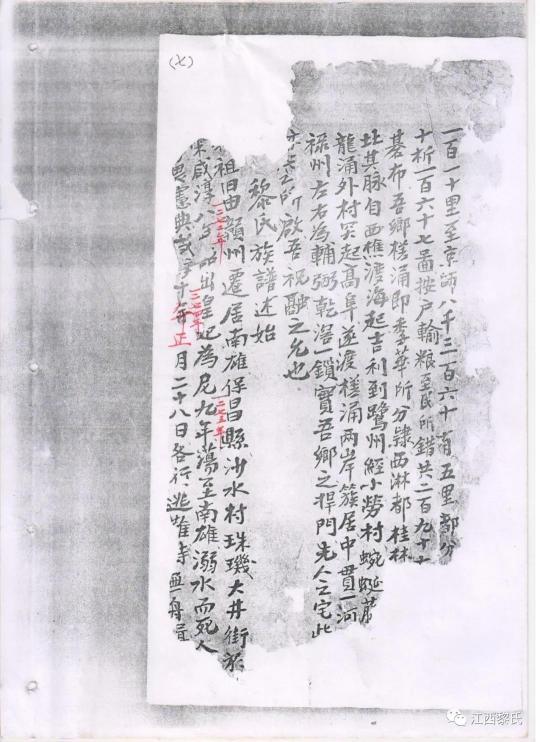 (七)
一百一十里至京師八千三百六十有五里都分
十析一百六十七圖按戶輸粮至民所錯共二百九十
碁布吾鄉槎涌即季華所分隸西淋都桂林
其脉自西樵渡海起吉利到鹭州經小勞村蜿蜒
龍涌外村突起髙阜遂渡槎涌兩岸簇居中貫一河
禄州左右為輔弼乾滘一鎖實吾鄉之捍門先人之宅此
所啟吾祝融之允也
黎氏族譜述始
祖因由嶺州遷居南雄保昌縣沙水村珠璣大井街於
宋咸淳八年 出皇妃為尼九年蕩至南雄溺水而死人
憲典 十年正月二十八日各行逃難
一二七二年
一二七四年
一二七五年
年正
江西黎氏